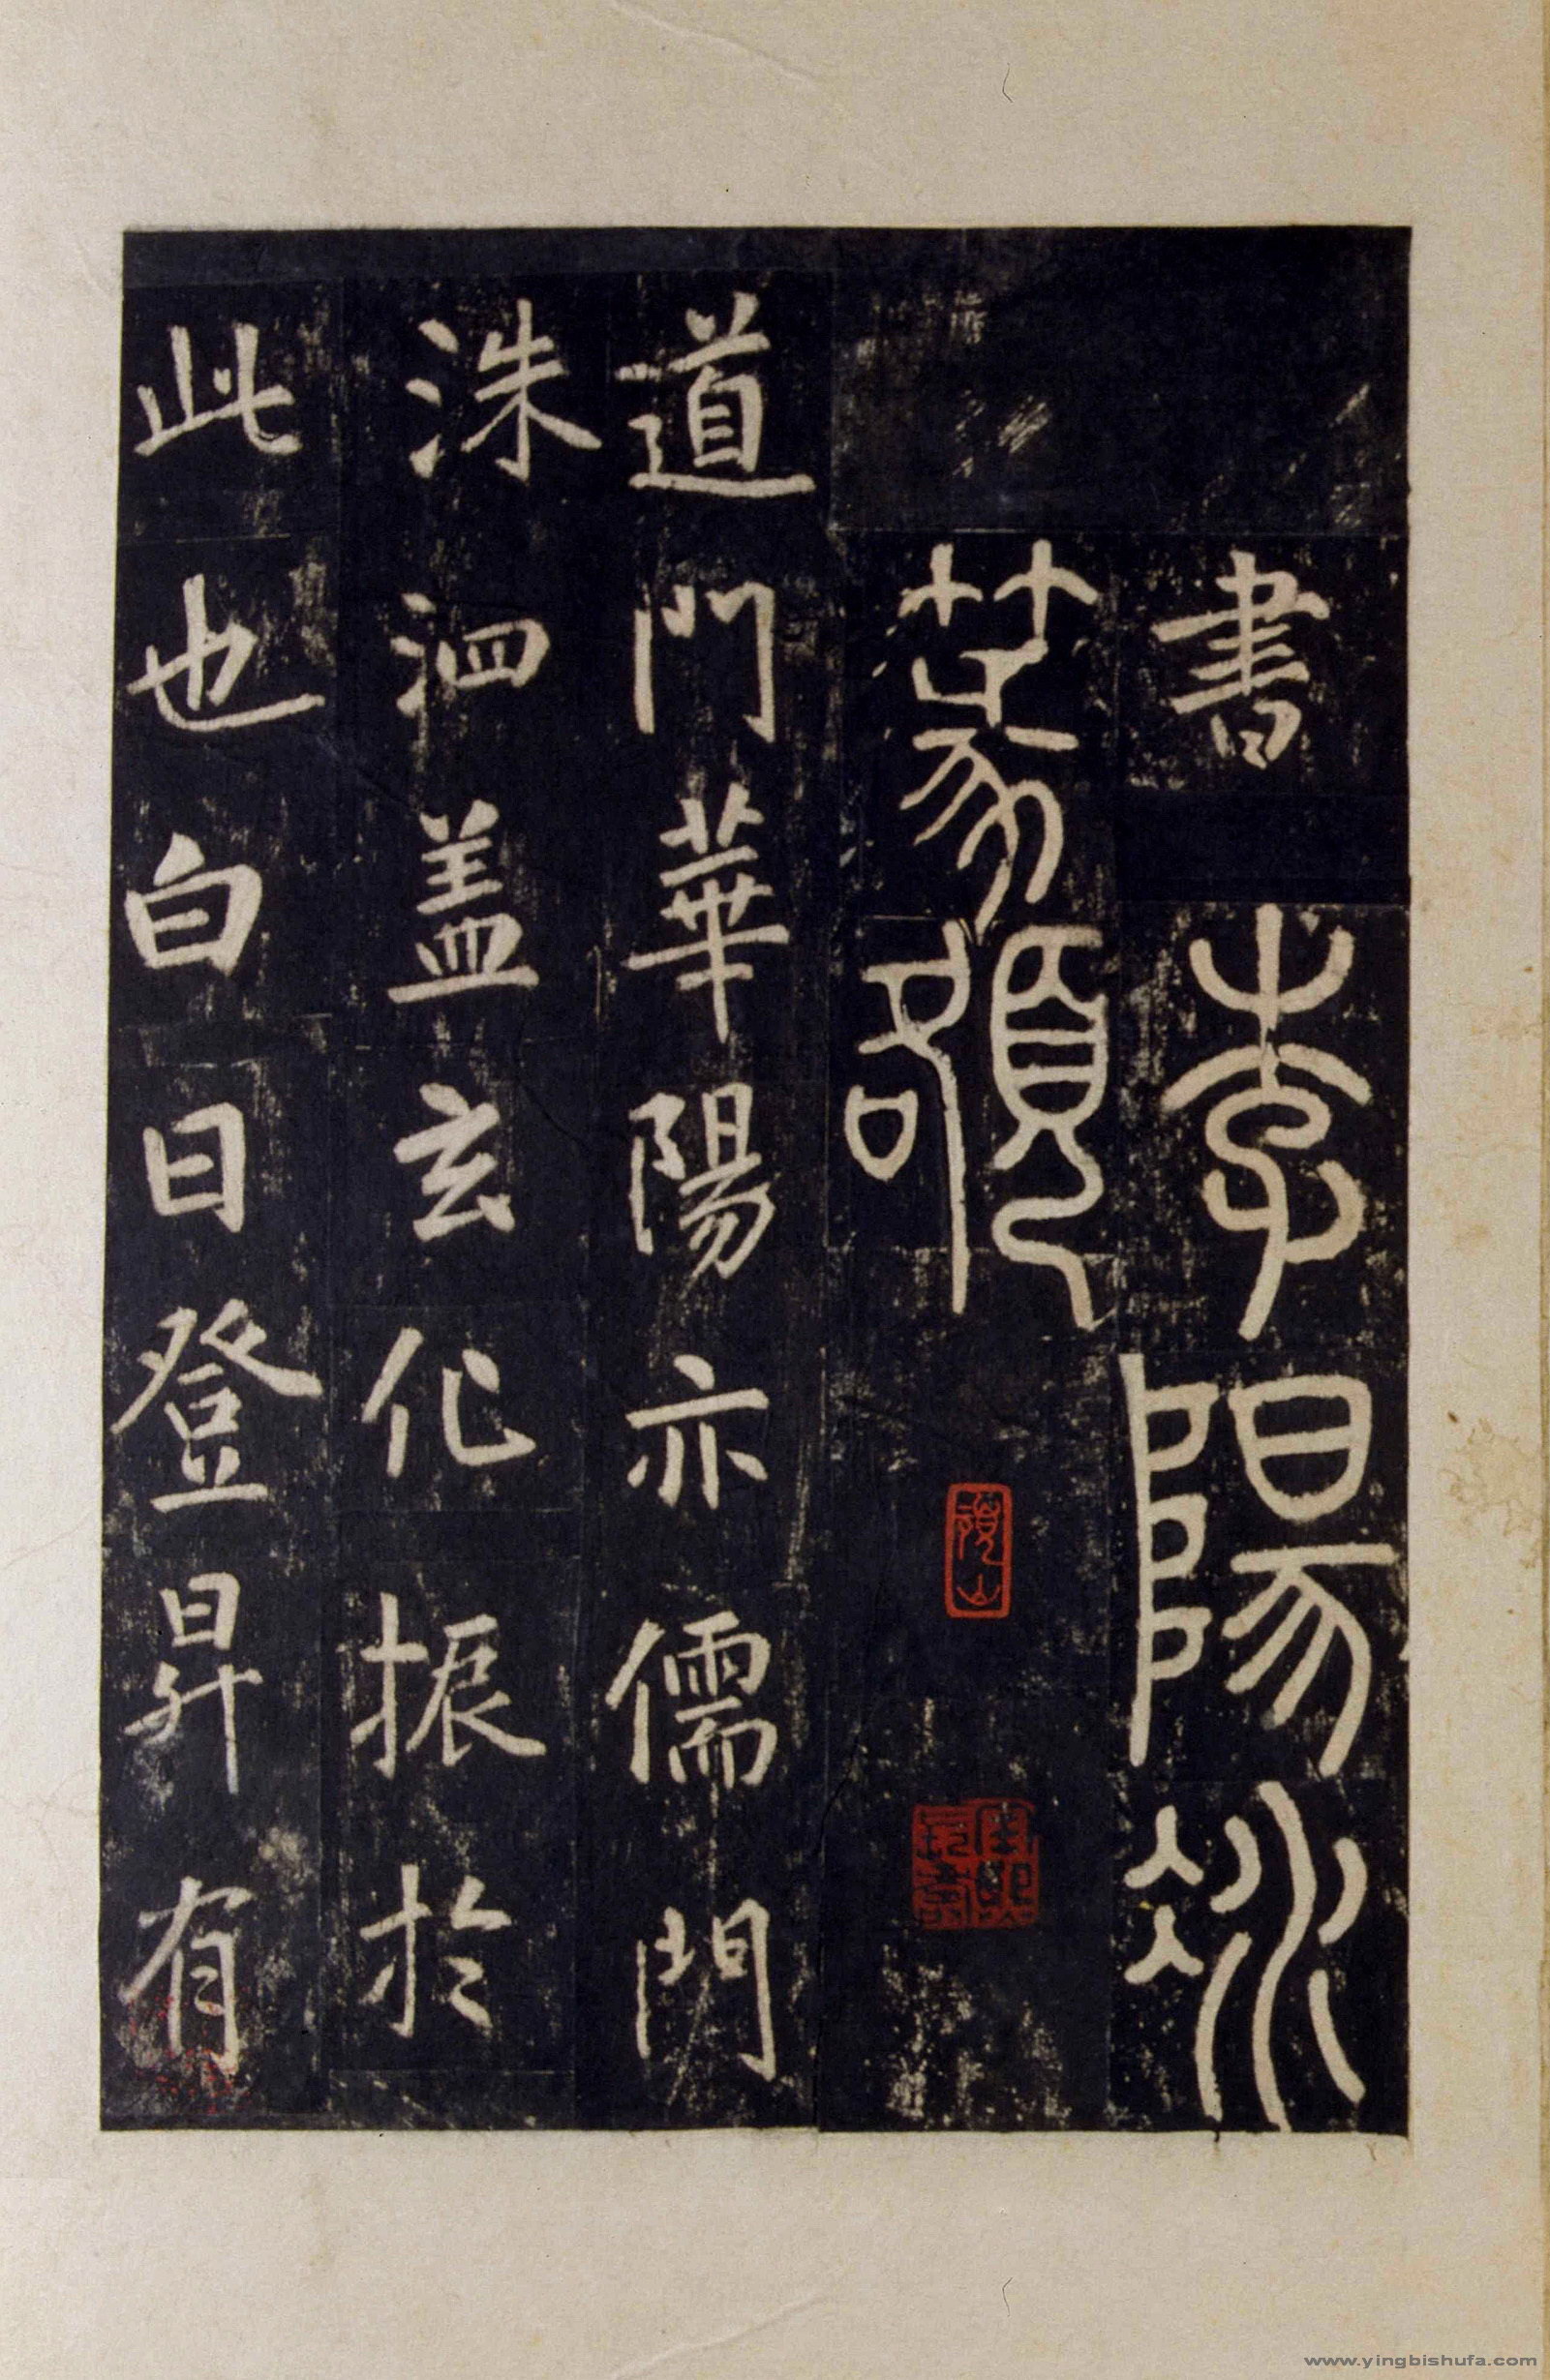 書 李陽冰
篆額
道門華陽亦儒門
洙泗盖玄化振於
此也白日登昇有
www.yingbishufa.com